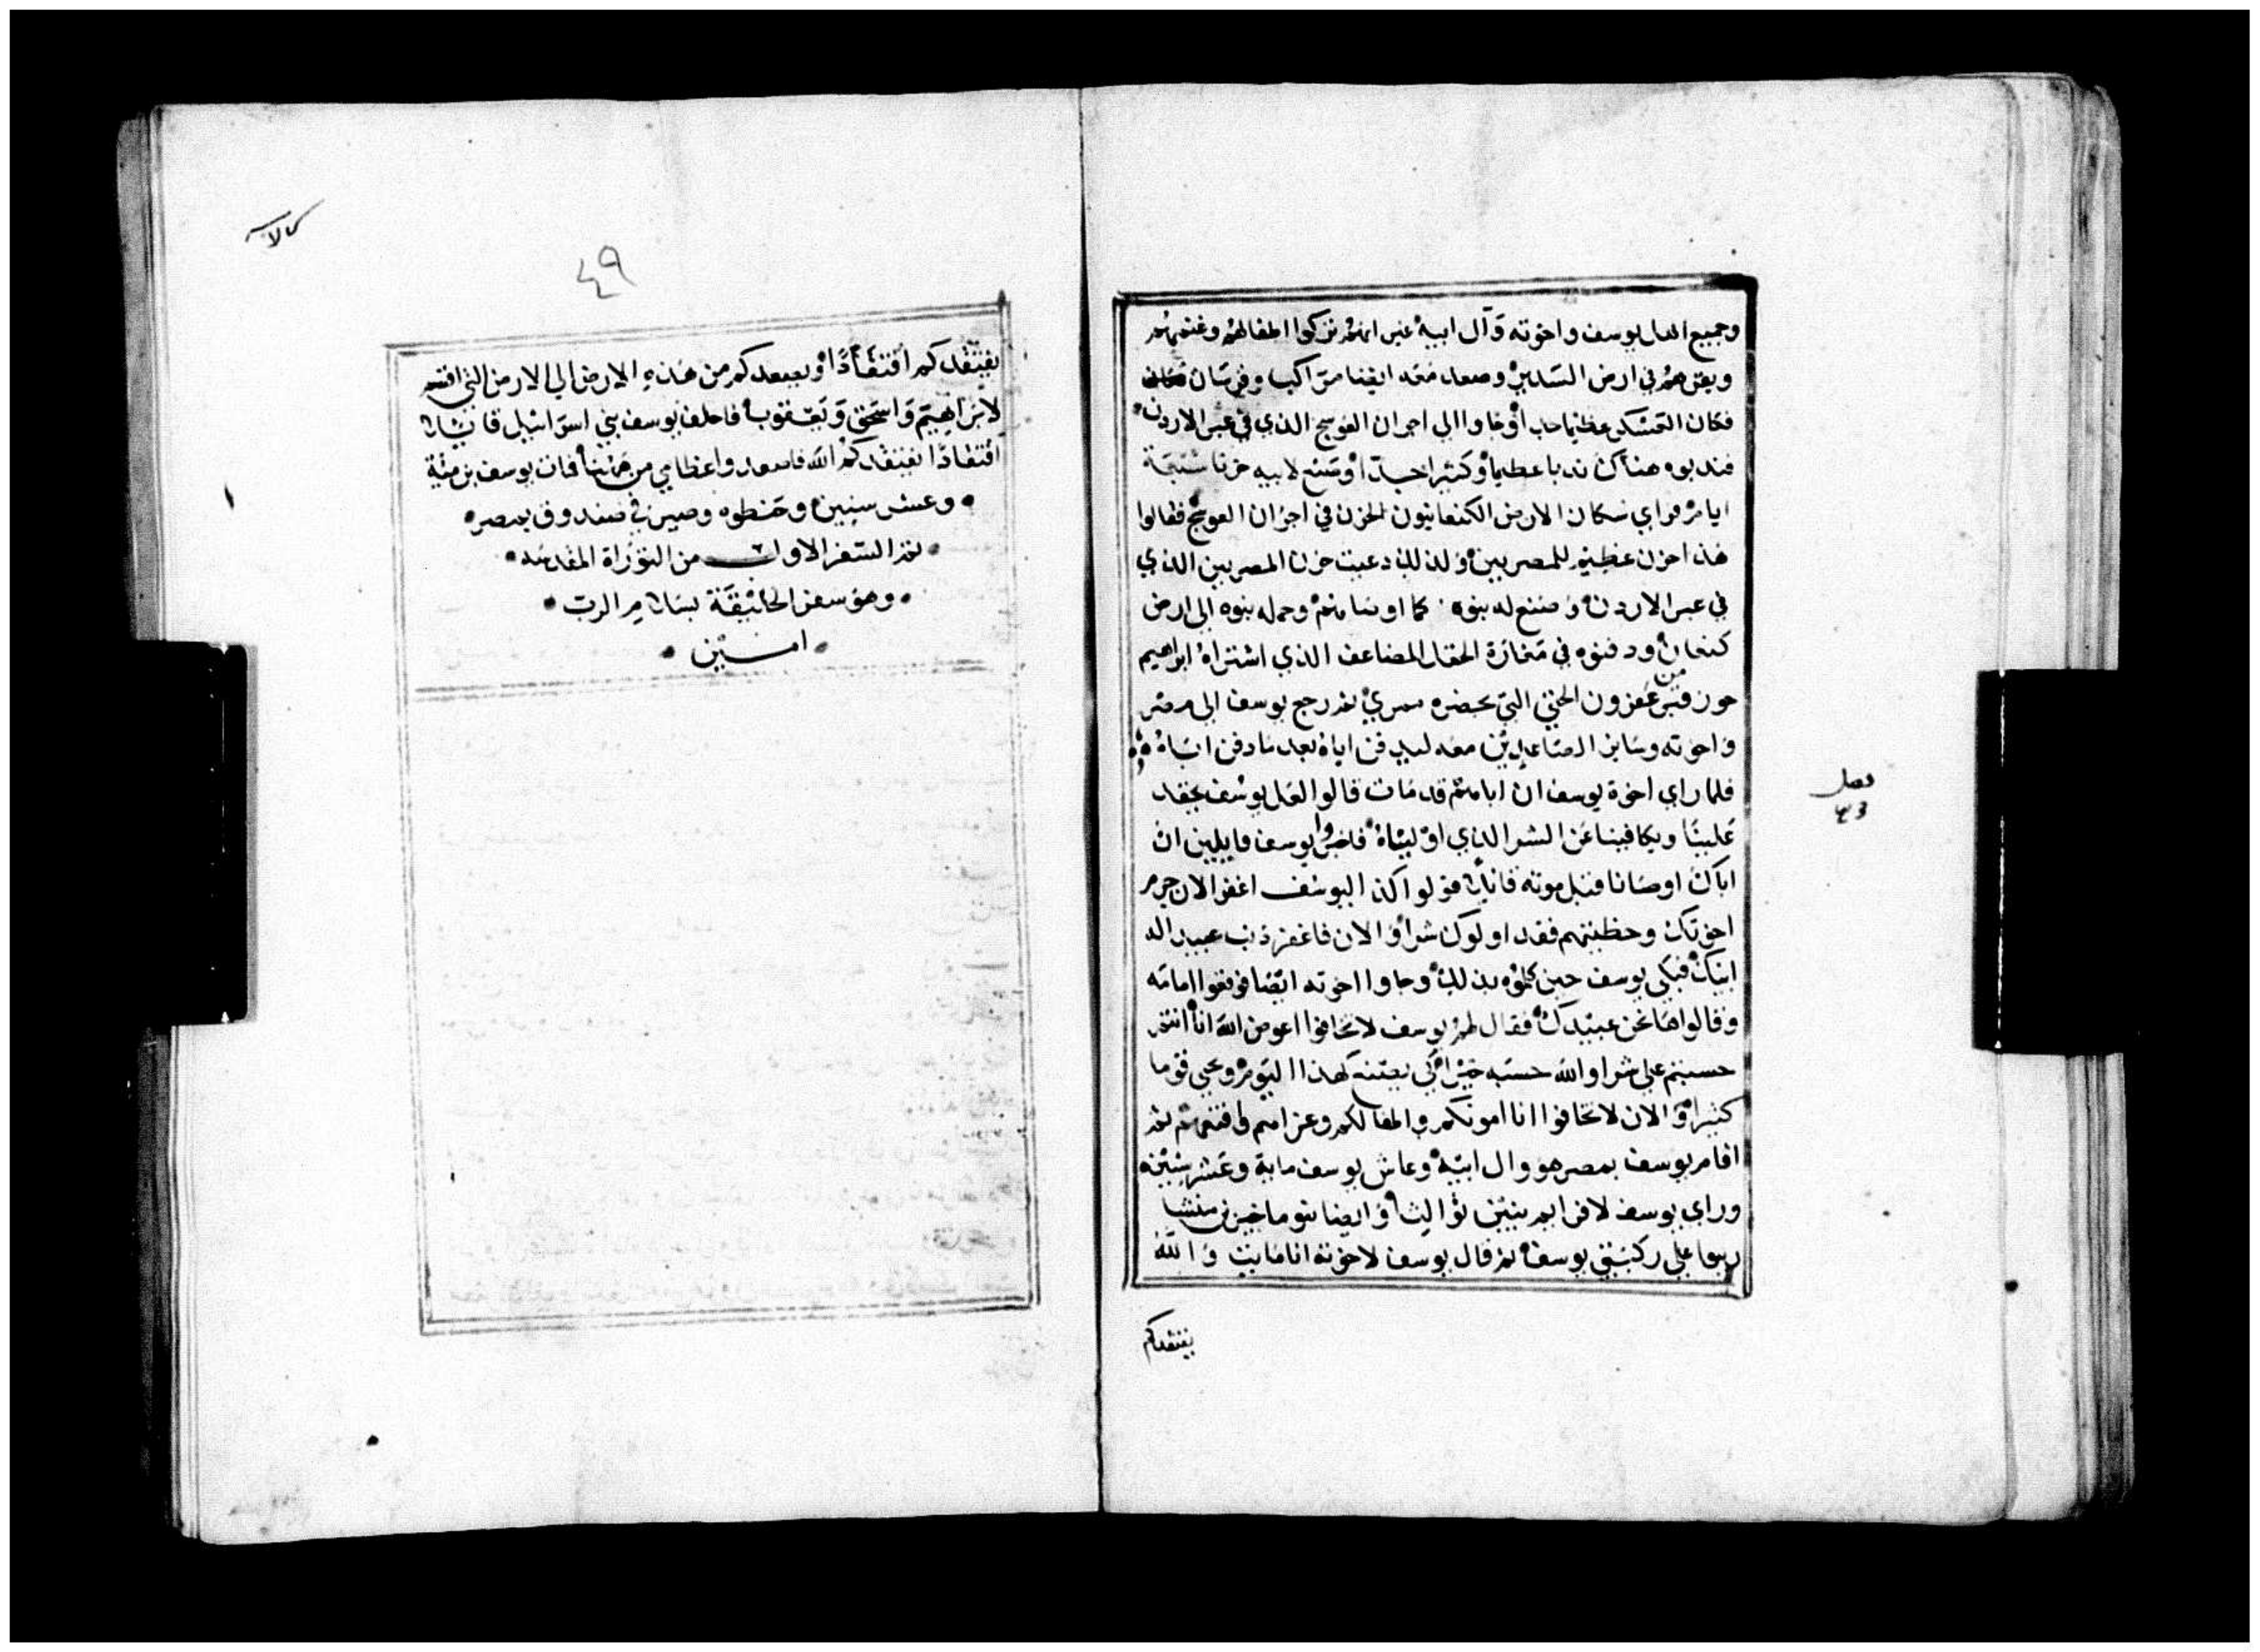 وجميع اهل يوسف واخوته وآل ابيه غير انهم تركوا اطفالهم وغنمهم
وبقرهم في ارض السدير وصعد معه ايضا مراكب وفرسان
فكان العسكر عظيما جدا وجاوا الي اجران العوسج الذي في عبر الاردن
فندبوه هناك ندبا عظيما وكثيرا جدا وصنع لابيه حزنا سبعة
ايام فراي سكان الارض الكنعانيون الحزن في اجران العوسج فقالوا
هذا حزن عظيم للمصريين ولذلك دعيت حزن المصريين الذي
في عبر الاردن وصنع له بنوه كما اوصاهم وحمله بنوه الي ارض
كنعان ودفنوه في مغارة الحقل المضاعف الذي اشتراه ابراهيم
حوز قبر من عفرون الحتي التي بحضرة ممري ثم رجع يوسف الي مصر
واخوته وساير الصاعدين معه لدفن اباه بعد ما دفن اباه
فلما راي اخوة يوسف ان اباهم قد مات قالوا لعل يوسف يحقد
علينا ويكافينا عن الشر الذي اوليناه فاخبروا يوسف قايلين ان
اباك اوصانا قبل موته قايلا قولوا كذا ليوسف اغفر الان جرم
اخوتك وخطيتهم فقد اولوك شرا والان فاغفر ذنب عبيد اله
ابيك فبكي يوسف حين كلموه بذلك وجاوا اخوته ايضا فوقعوا امامه
وقالوا ها نحن عبيدك فقال لهم يوسف لا تخافوا اعوض الله انا انتم
حسبتم علي شرا والله حسبه خيرا لكي يعينه لهذا اليوم ويحيي قوما
كثيرا والان لا تخافوا انا امونكم واطفالكم وعزاهم واقنعهم ثم
اقام يوسف بمصر هو وال ابيه وعاش يوسف ماية وعشر سنين
وراي يوسف لافرايم بنين ثوالث وايضا بنو ماخير بن منشا
ربوا علي ركبتي يوسف ثم قال يوسف لاخوته انا مايت والله
يفتقدكم
فصل
٤٣
٤٩
يفتقدكم افتقادا ويصعدكم من هذه الارض الي الارض التي اقسم
لابراهيم واسحق ويعقوب فاحلف يوسف بني اسرائيل قايلا
افتقادا يفتقدكم الله فاصعدوا عظامي من هنا فمات يوسف بن مئة
وعشر سنين وحنطوه وصير في صندوق بمصر
تم السفر الاول من التوراة المقدسة
وهو سفر الخليقة بسلام الرب
امين